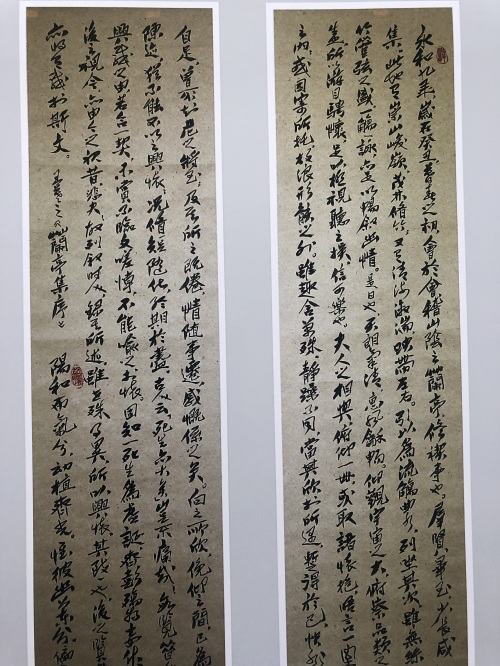 永和九年歲在癸丑暮春之初會於會稽山陰之蘭亭修禊事也。群賢畢至少長咸
集。此地有崇山峻嶺。茂林修竹。又有清流激湍映帶左右。引以為流觴曲水。列坐其次雖無絲
竹管弦之盛一觴一詠亦足以暢敘幽情。是日也。天朗氣清惠風和暢。仰觀宇宙之大俯察品類之
盛所以游目騁懷足以極視聽之娛。信可樂也。夫人之相與俯仰一世或取諸懷抱悟言一室
之內或因寄所托放浪形骸之外。雖趣舍萬殊靜躁不同當其欣於所遇暫得於己快然
自足。曾不知老之將至。及其所之既倦情隨事遷。感慨係之矣。向之所欣俛仰之間已為
陳迹猶不能不以之興懷。況修短隨化終期於盡。古人云死生亦大矣豈不痛哉。每覽昔
興感之由若合一契。未嘗不臨文嗟悼不能喻之於懷。固知一死生為虛誕齊彭殤為妄作
後之視今亦由今之視昔悲夫。故列敘時人錄其所述雖世殊事異所以興懷其致一也。後之覽
亦將有感於斯文。王羲之蘭亭集序 陽和布氣兮動植齊成